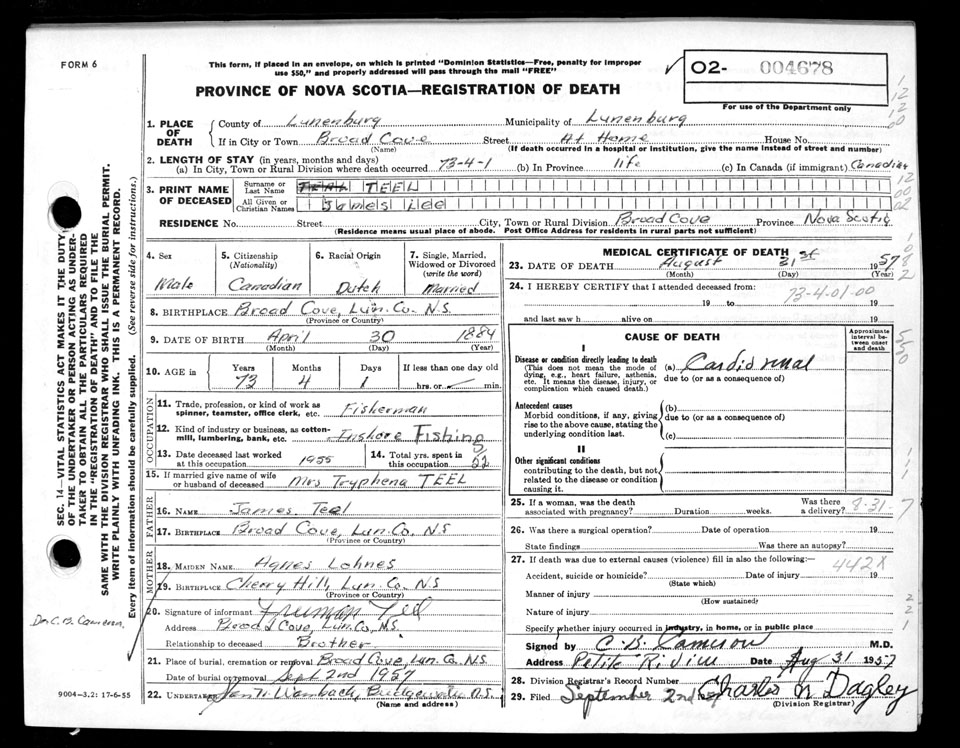 FORM 6
This form, if placed in an envelope, on which is printed "Dominion Statistics—Free, penalty for improper
use $50," and properly addressed will pass through the mail "FREE"
PROVINCE OF NOVA SCOTIA—REGISTRATION OF DEATH
O2- 004678
For use of the Department only
1. PLACE OF DEATH County of Lunenburg Municipality of Lunenburg
If in City or Town Broad Cove Street At Home House No.
(Name) (If death occurred in a hospital or institution, give the name instead of street and number)
2. LENGTH OF STAY (in years, months and days)
(a) In City, Town or Rural Division where death occurred 73-4-1 (b) In Province life (c) In Canada (if immigrant) Canadian
3. PRINT NAME OF DECEASED Surname or Last Name TEEL
All Given or Christian Names James
RESIDENCE No. Street City, Town or Rural Division Broad Cove Province Nova Scotia
(Residence means usual place of abode. Post Office Address for residents in rural parts not sufficient)
4. Sex Male
5. Citizenship (Nationality) Canadian
6. Racial Origin Dutch
7. Single, Married, Widowed or Divorced (write the word) Married
8. BIRTHPLACE Broad Cove, Lun. Co. N.S.
(Province or Country)
9. DATE OF BIRTH April 30 1884
(Month) (Day) (Year)
10. AGE in Years Months Days If less than one day old
73 4 1 hrs. or min.
OCCUPATION
11. Trade, profession, or kind of work as spinner, teamster, office clerk, etc. Fisherman
12. Kind of industry or business, as cotton-mill, lumbering, bank, etc. Inshore Fishing
13. Date deceased last worked at this occupation 1955
14. Total yrs. spent in this occupation 52
15. If married give name of wife or husband of deceased Mrs Tryphena TEEL
FATHER
16. NAME James Teel
17. BIRTHPLACE Broad Cove, Lun. Co, N.S.
(Province or Country)
MOTHER
18. MAIDEN NAME Agnes Lohnes
19. BIRTHPLACE Cherry Hill, Lun. Co, N.S
(Province or Country)
20. Signature of informant Freeman Teel
Address Broad Cove, Lun. Co, N.S.
Relationship to deceased Brother
21. Place of burial, cremation or removal Broad Cove, Lun. Co. N.S.
Date of burial or removal Sept 2nd 1957
22. UNDERTAKER Bridgewater, N.S.
(Name and address)
MEDICAL CERTIFICATE OF DEATH
23. DATE OF DEATH August 31 st 1957
(Month) (Day) (Year)
24. I HEREBY CERTIFY that I attended deceased from:
19 to 73-4-01-00 19
and last saw h alive on 19
CAUSE OF DEATH
Approximate interval between onset and death
I
Disease or condition directly leading to death
(This does not mean the mode of dying, e.g., heart failure, asthenia, etc. It means the disease, injury, or complication which caused death.)
(a) Cardio renal
due to (or as a consequence of)
Antecedent causes
Morbid conditions, if any, giving rise to the above cause, stating the underlying condition last.
(b)
due to (or as a consequence of)
(c)
II
Other significant conditions
contributing to the death, but not related to the disease or condition causing it.
25. If a woman, was the death associated with pregnancy? Duration weeks. Was there a delivery? 8-31-7
26. Was there a surgical operation? Date of operation 19
State findings Was there an autopsy?
27. If death was due to external causes (violence) fill in also the following:— 442X
Accident, suicide or homicide? Date of injury 19
(State which)
Manner of injury
(How sustained)
Nature of injury
Specify whether injury occurred in industry, in home, or in public place
Signed by C. B. Cameron M.D.
Address Petite Riviere Date Aug 31 1957
28. Division Registrar's Record Number
29. Filed September 2nd 57 Charles N Dagley
(Division Registrar)
SEC. 14—VITAL STATISTICS ACT MAKES IT THE DUTY
OF THE UNDERTAKER OR PERSON ACTING AS UNDER-
TAKER TO OBTAIN ALL THE PARTICULARS REQUIRED
IN THE "REGISTRATION OF DEATH" AND TO FILE THE
SAME WITH THE DIVISION REGISTRAR WHO SHALL ISSUE THE BURIAL PERMIT.
WRITE PLAINLY WITH UNFADING INK. THIS IS A PERMANENT RECORD.
Every item of information should be carefully supplied. (See reverse side for instructions.)
Dr. C. B. Cameron
9004-3.2: 17-6-55